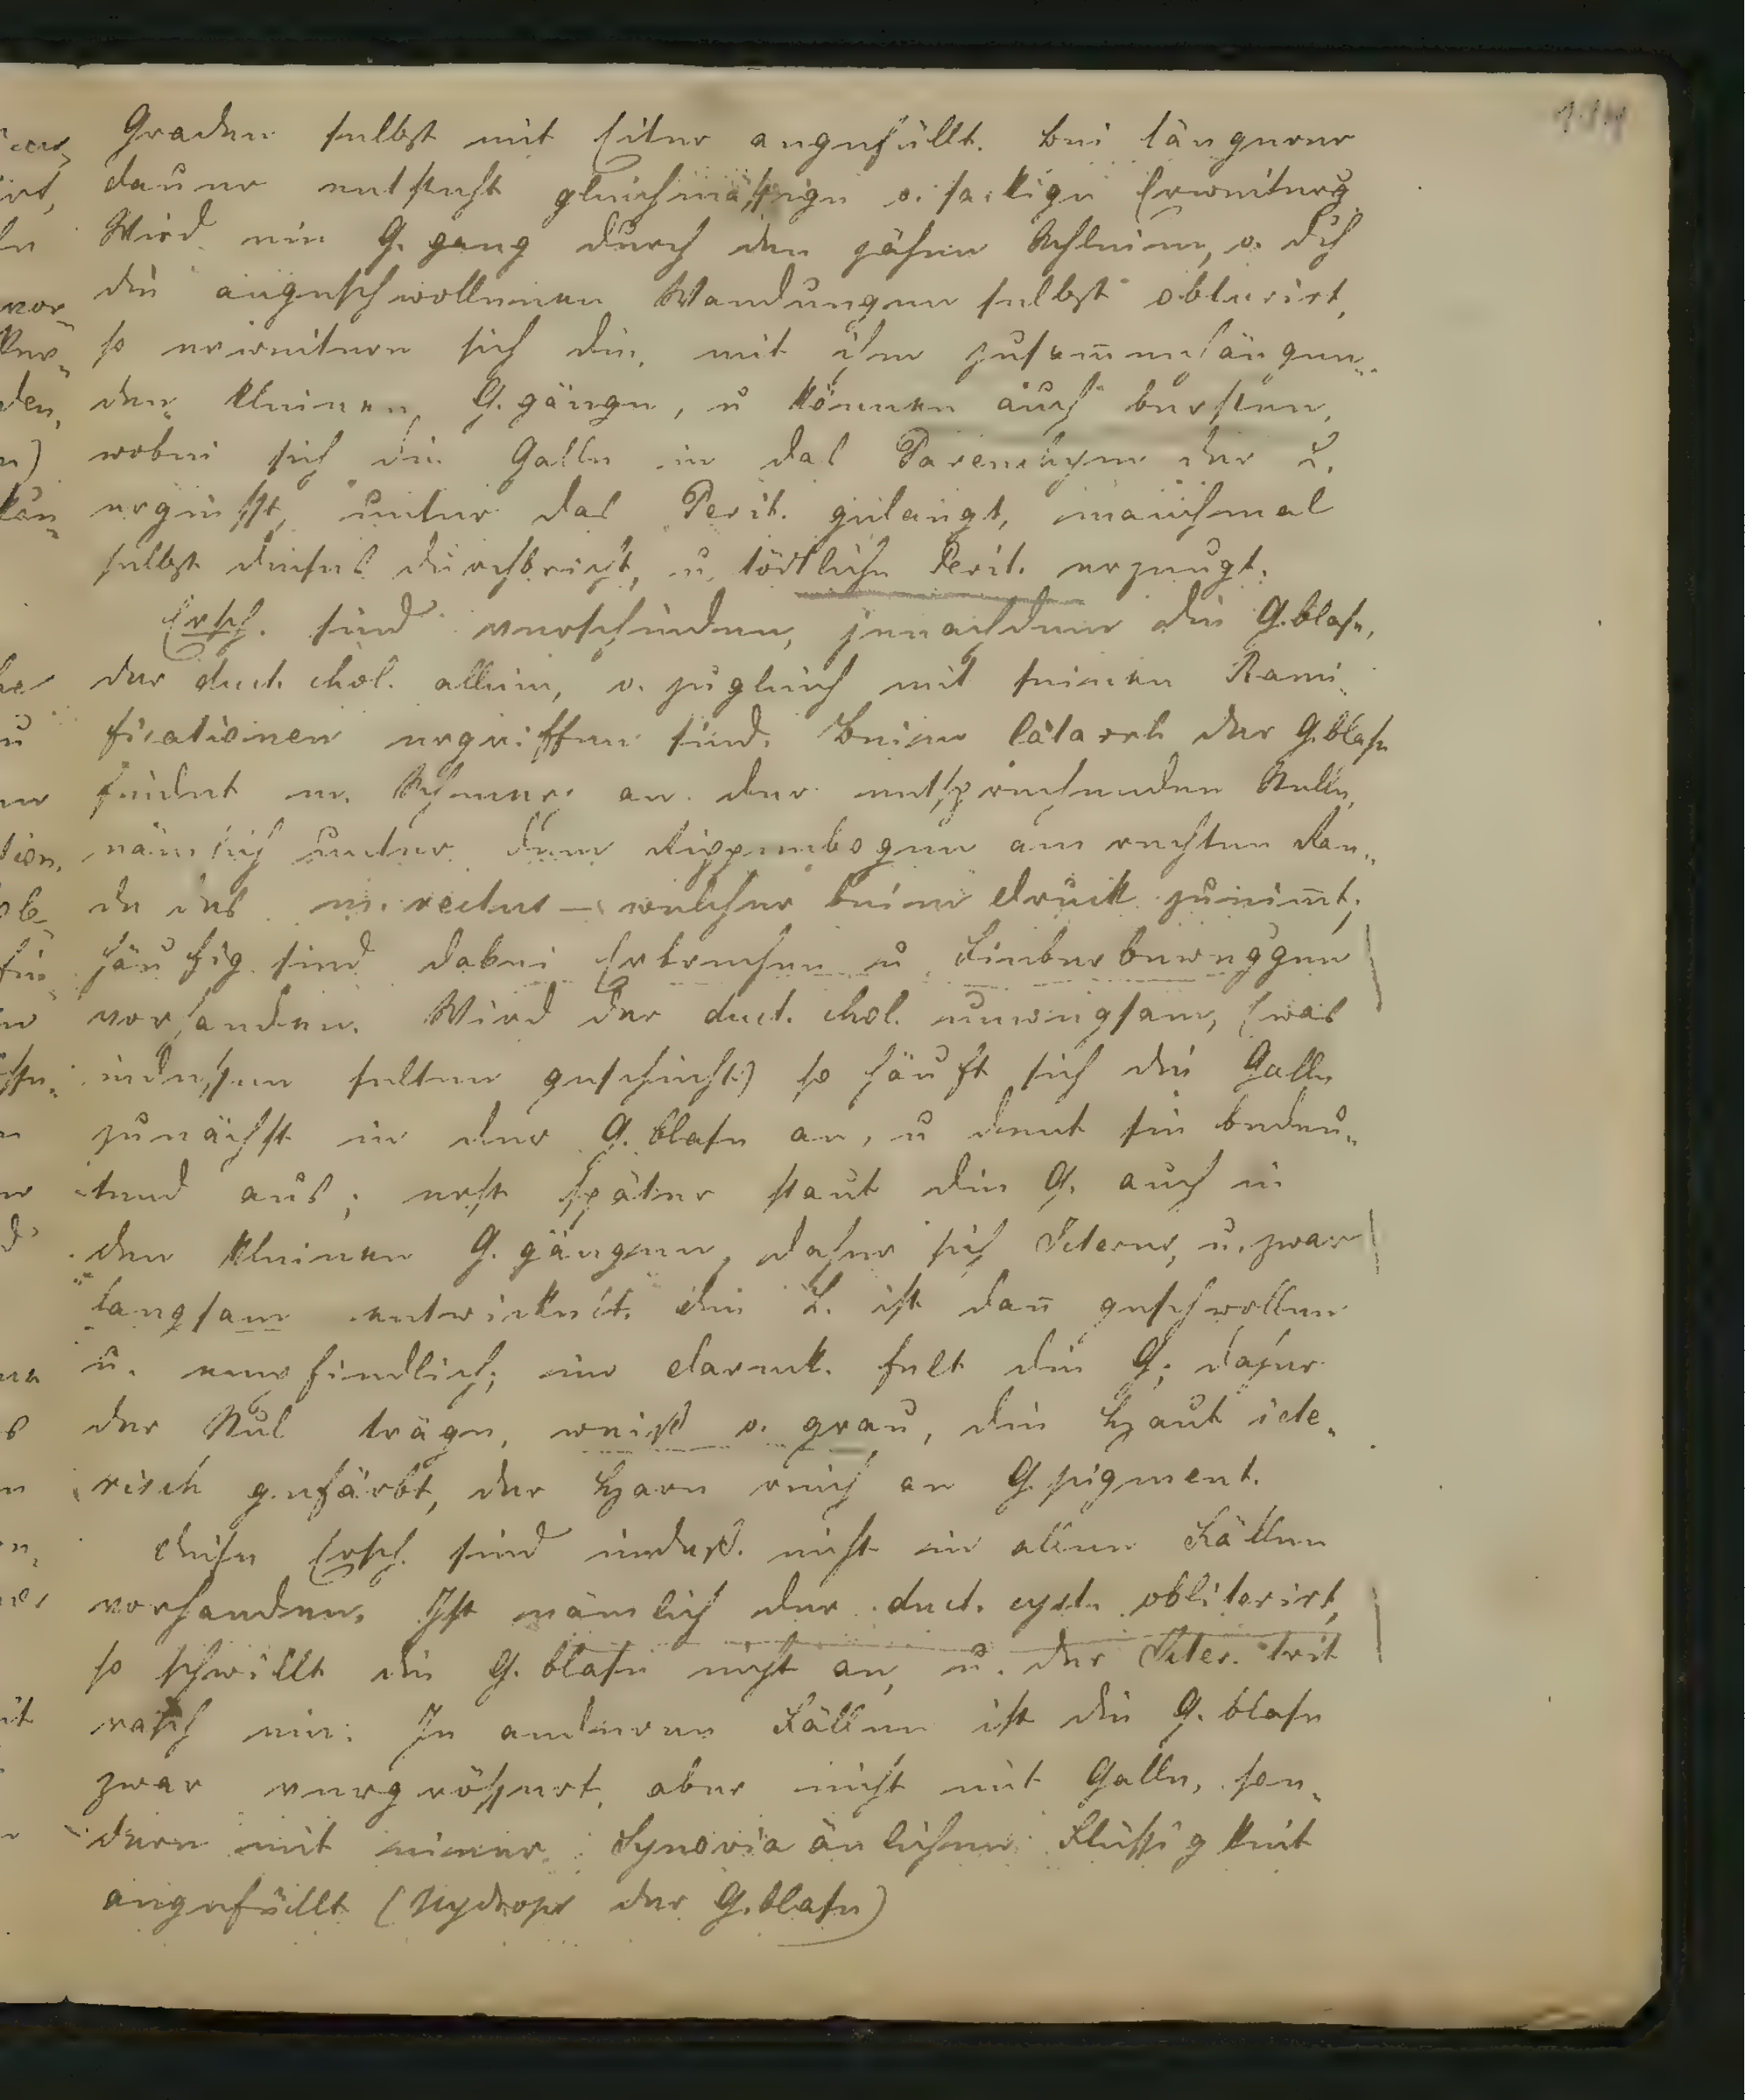 Graden selbst mit Eiter angefüllt. Bei längerer
Dauer entsteht gleichmäßige o. sackige Erweiterg
Wird ein G. gang durch den zähen Schleim, o. dch
die angeschwollenen Wandungen selbst obturirt,
so erweitern sich die, mit ihm zusam̅enhängen-
den kleinen G. gänge, u können auch bersten,
wobei sich die Galle in das Parenchym der L.
ergießt, unter das Perit. gelangt, manchmal
selbst dieses durchbricht, u, tödtliche Perit. erzeugt.
Ersch. sind verschieden, jenachdem die G.blase,
der duct. chol. allein, o. zugleich mit seinen Rami-
ficationen ergriffen sind. Beim Catarrh der G.blase
findet m. Schmerz an der entsprechenden Stelle,
nämlich unter dem Rippenbogen am rechten Ran-
de des m. rectus – welcher beim Druck zunim̅t;
häufig sind dabei Erbrechen u Fieberbewegg̅en
vorhanden. Wird der duct. chol. unwegsam, (was
indessen selten geschieht) so häuft sich die Galle
zunächst in der G. blase an, u dent sie bedeu-
tend aus; erst später staut die G. auch in
den kleinen G. gängen, daher sich Icterus, u. zwar
langsam entwickelt. Die L. ist dan̅ geschwollen
u. empfindlich; im Darmk. felt die G; daher
der Stul träge, weiß o. grau, die Haut icte-
risch gefärbt, der Harn reich an G.pigment.
Diese Ersch. sind indeß. nicht in allen Fällen
vorhanden. Ist nämlich der duct. cyst. obliterirt,
so schwillt die G. blase nicht an, u. der Icter. trit
rasch ein. In anderen Fällen ist die G. blase
zwar vergrößert, aber nicht mit Galle, son-
dern mit einer Synovia änlichen Flüssigkeit
angefüllt (Hydrops der G.blase)